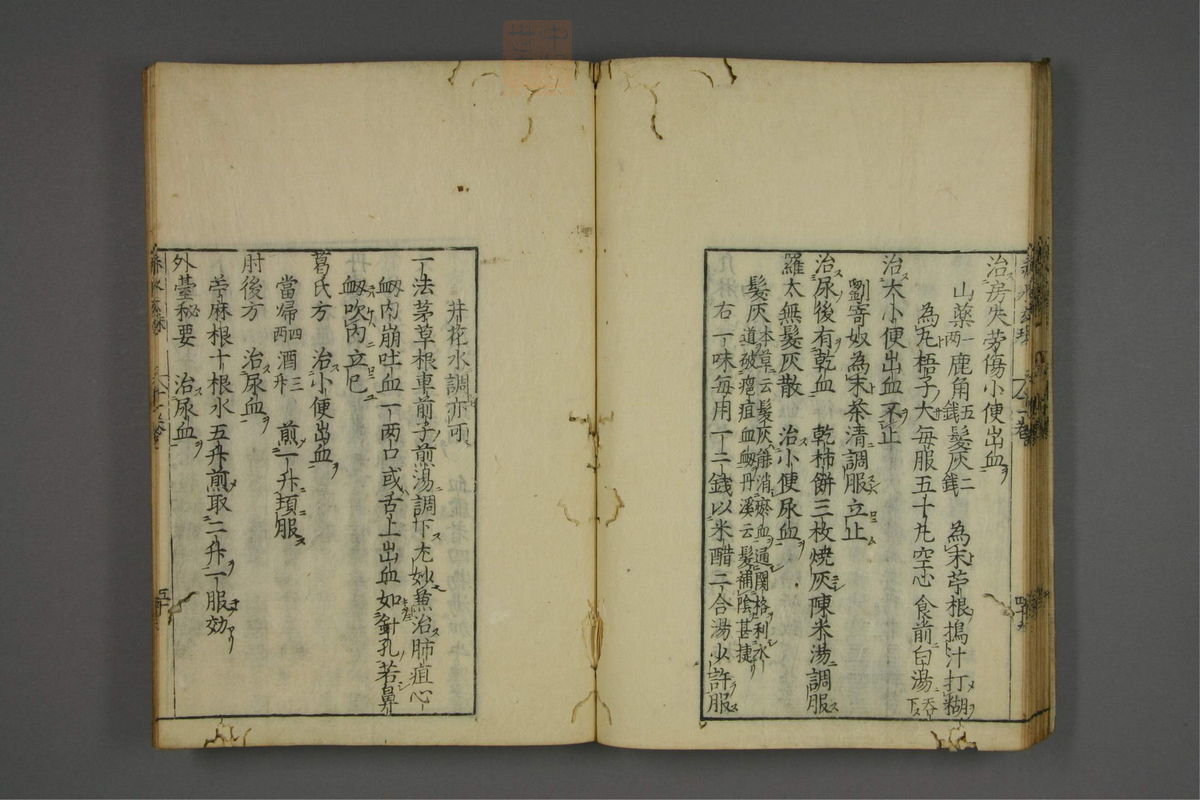 治房失労傷小便出血
山薬一两鹿角五錢髮灰二錢 為末苧根搗汁打糊
為丸梧子大毎服五十丸空心食前白湯吞下
治大小便出血不止
劉寄奴為末茶清調服立止
治尿後有乾血 乾柿餅三枚焼灰陳米湯調服
羅太無髮灰散 治小便尿血
髮灰本草云髮灰能消瘀血通関格利水道破癥疽血衂丹溪云髮補陰甚捷
右一味毎用一二錢以米醋二合湯少許服
井花水調亦可
一法茅草根車前子煎湯調下尤妙兼治肺疽心
衂肉崩吐血一两口或舌上出血如針孔若鼻
衂吹内立已
葛氏方 治小便出血
當帰四两酒三升 煎一升頓服
肘後方 治尿血
苧麻根十根水五升煎取二升一服効
外臺秘要 治尿血